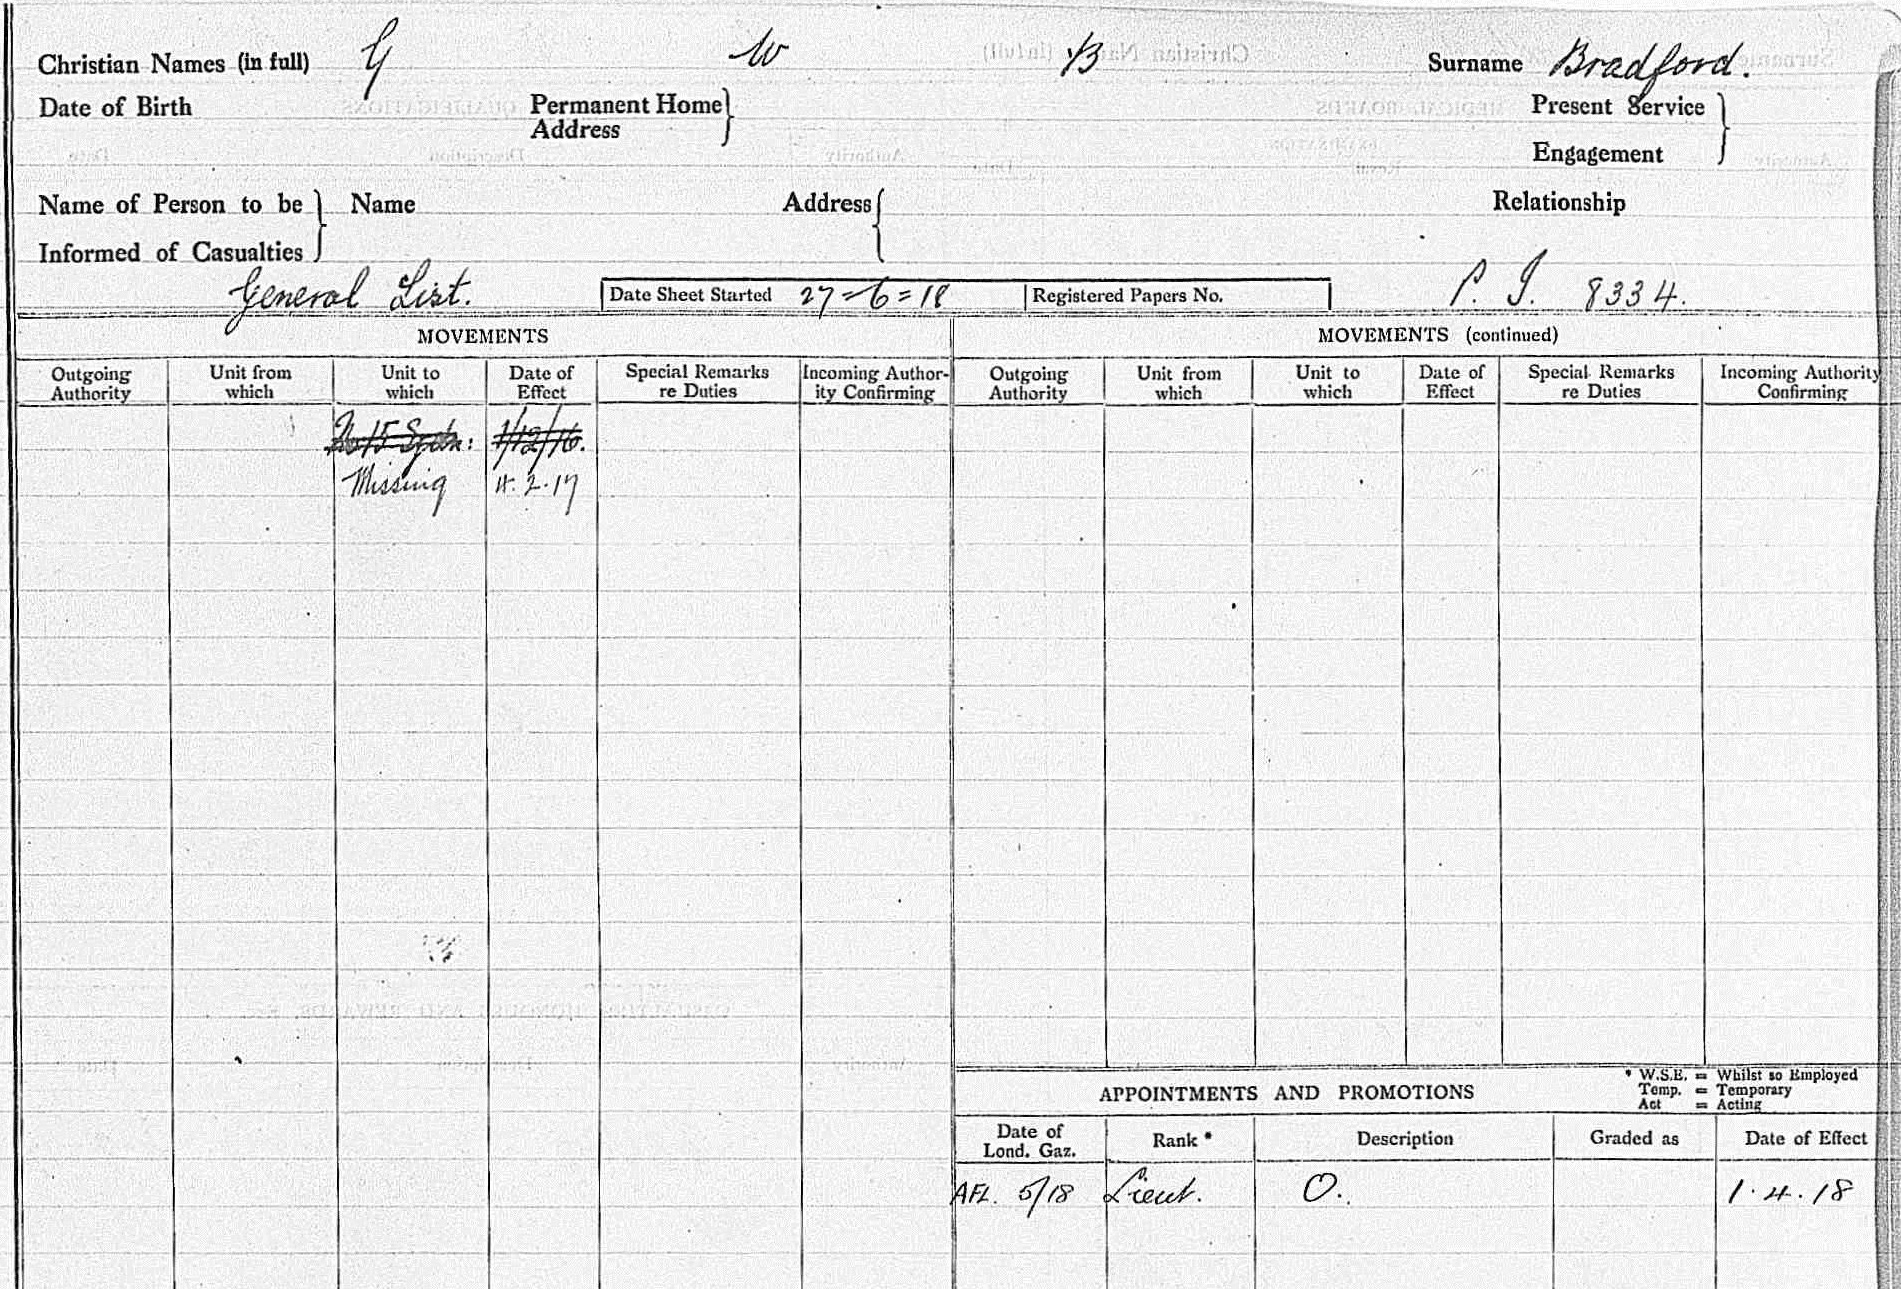 Christian Names (in full) G W B Surname Bradford.
Date of Birth Permanent Home Address Present Service
Engagement
Name of Person to be Informed of Casualties Name Address Relationship
General List. Date Sheet Started 27=6=18 Registered Papers No. P. I. 8334.
MOVEMENTS MOVEMENTS (continued)
Outgoing Authority Unit from which Unit to which Date of Effect Special Remarks re Duties Incoming Author-ity Confirming Outgoing Authority Unit from which Unit to which Date of Effect Special Remarks re Duties Incoming Authority Confirming
No 15 Sqdn: 1/12/16.
Missing 4.2.17
APPOINTMENTS AND PROMOTIONS
* W.S.E. = Whilst so Employed
Temp. = Temporary
Act = Acting
Date of Lond. Gaz. Rank * Description Graded as Date of Effect
AFL. 5/18 Lieut. O. 1.4.18